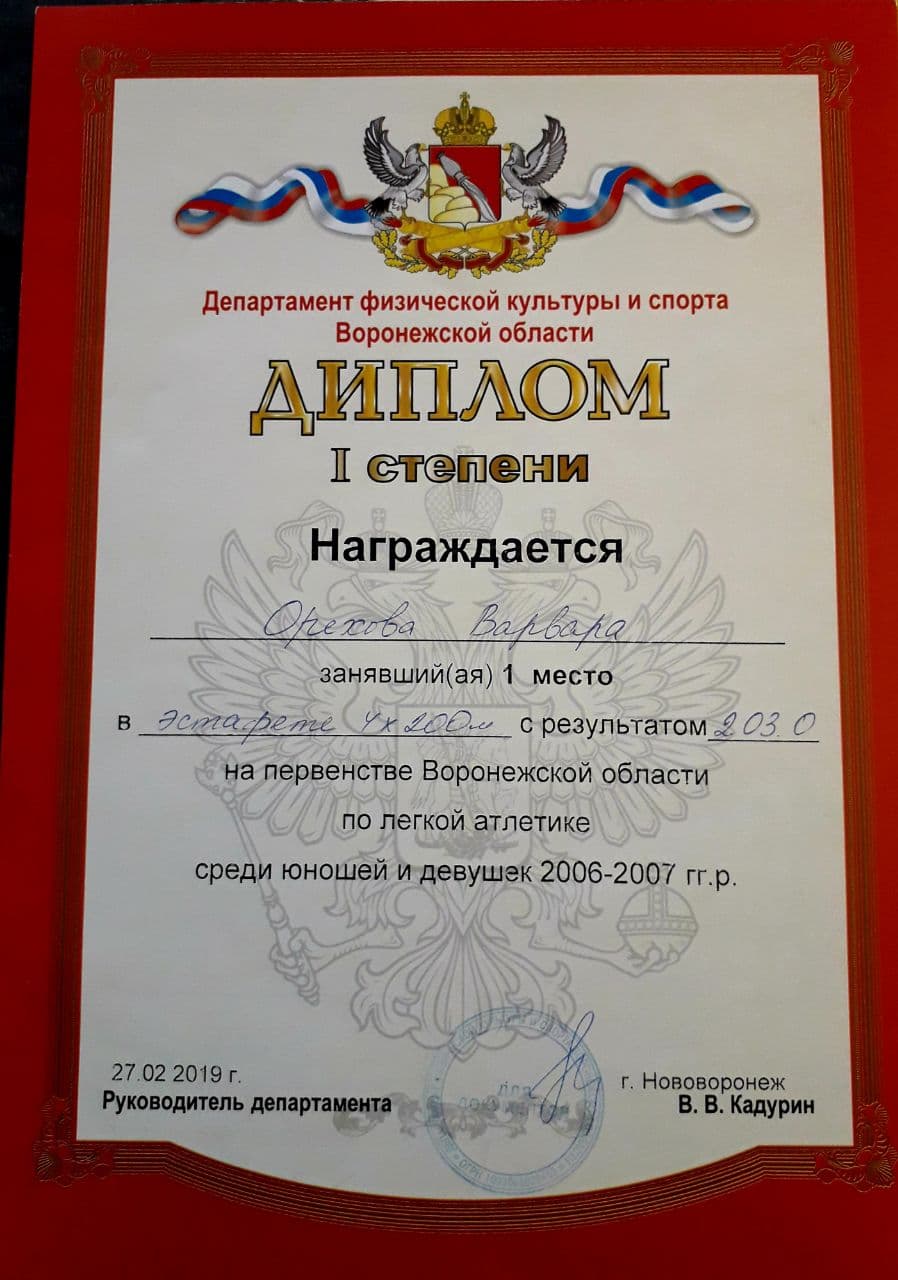 Департамент физической культуры и спорта
Воронежской области
ДИПЛОМ
I степени
Награждается
Орехова Варвара
занявший(ая) 1 место
в эстафете 4х200м с результатом 2.03.0
на первенстве Воронежской области
по легкой атлетике
среди юношей и девушек 2006-2007 гг.р.
27.02 2019 г.
г. Нововоронеж
Руководитель департамента
В. В. Кадурин
Для
документов